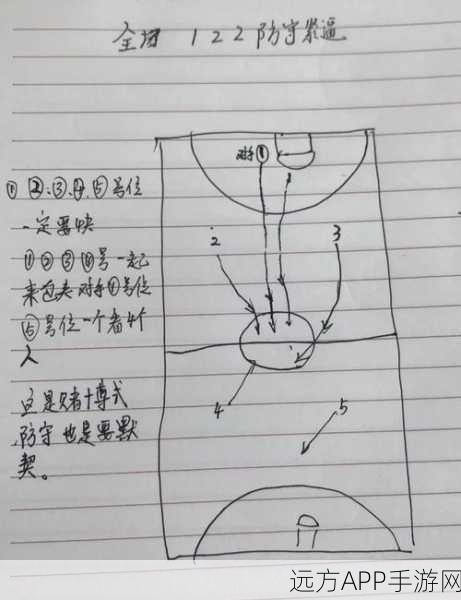 全场 1 2 2 防守紧逼
对手①
1
2
3
4
5
① ②、③、④、⑤号位
一定要快
①②③④号一起
来包夹对手①号位
⑤号位一个看4个
人
这是赌博式
防守也是要默
契。
远方APP手游网